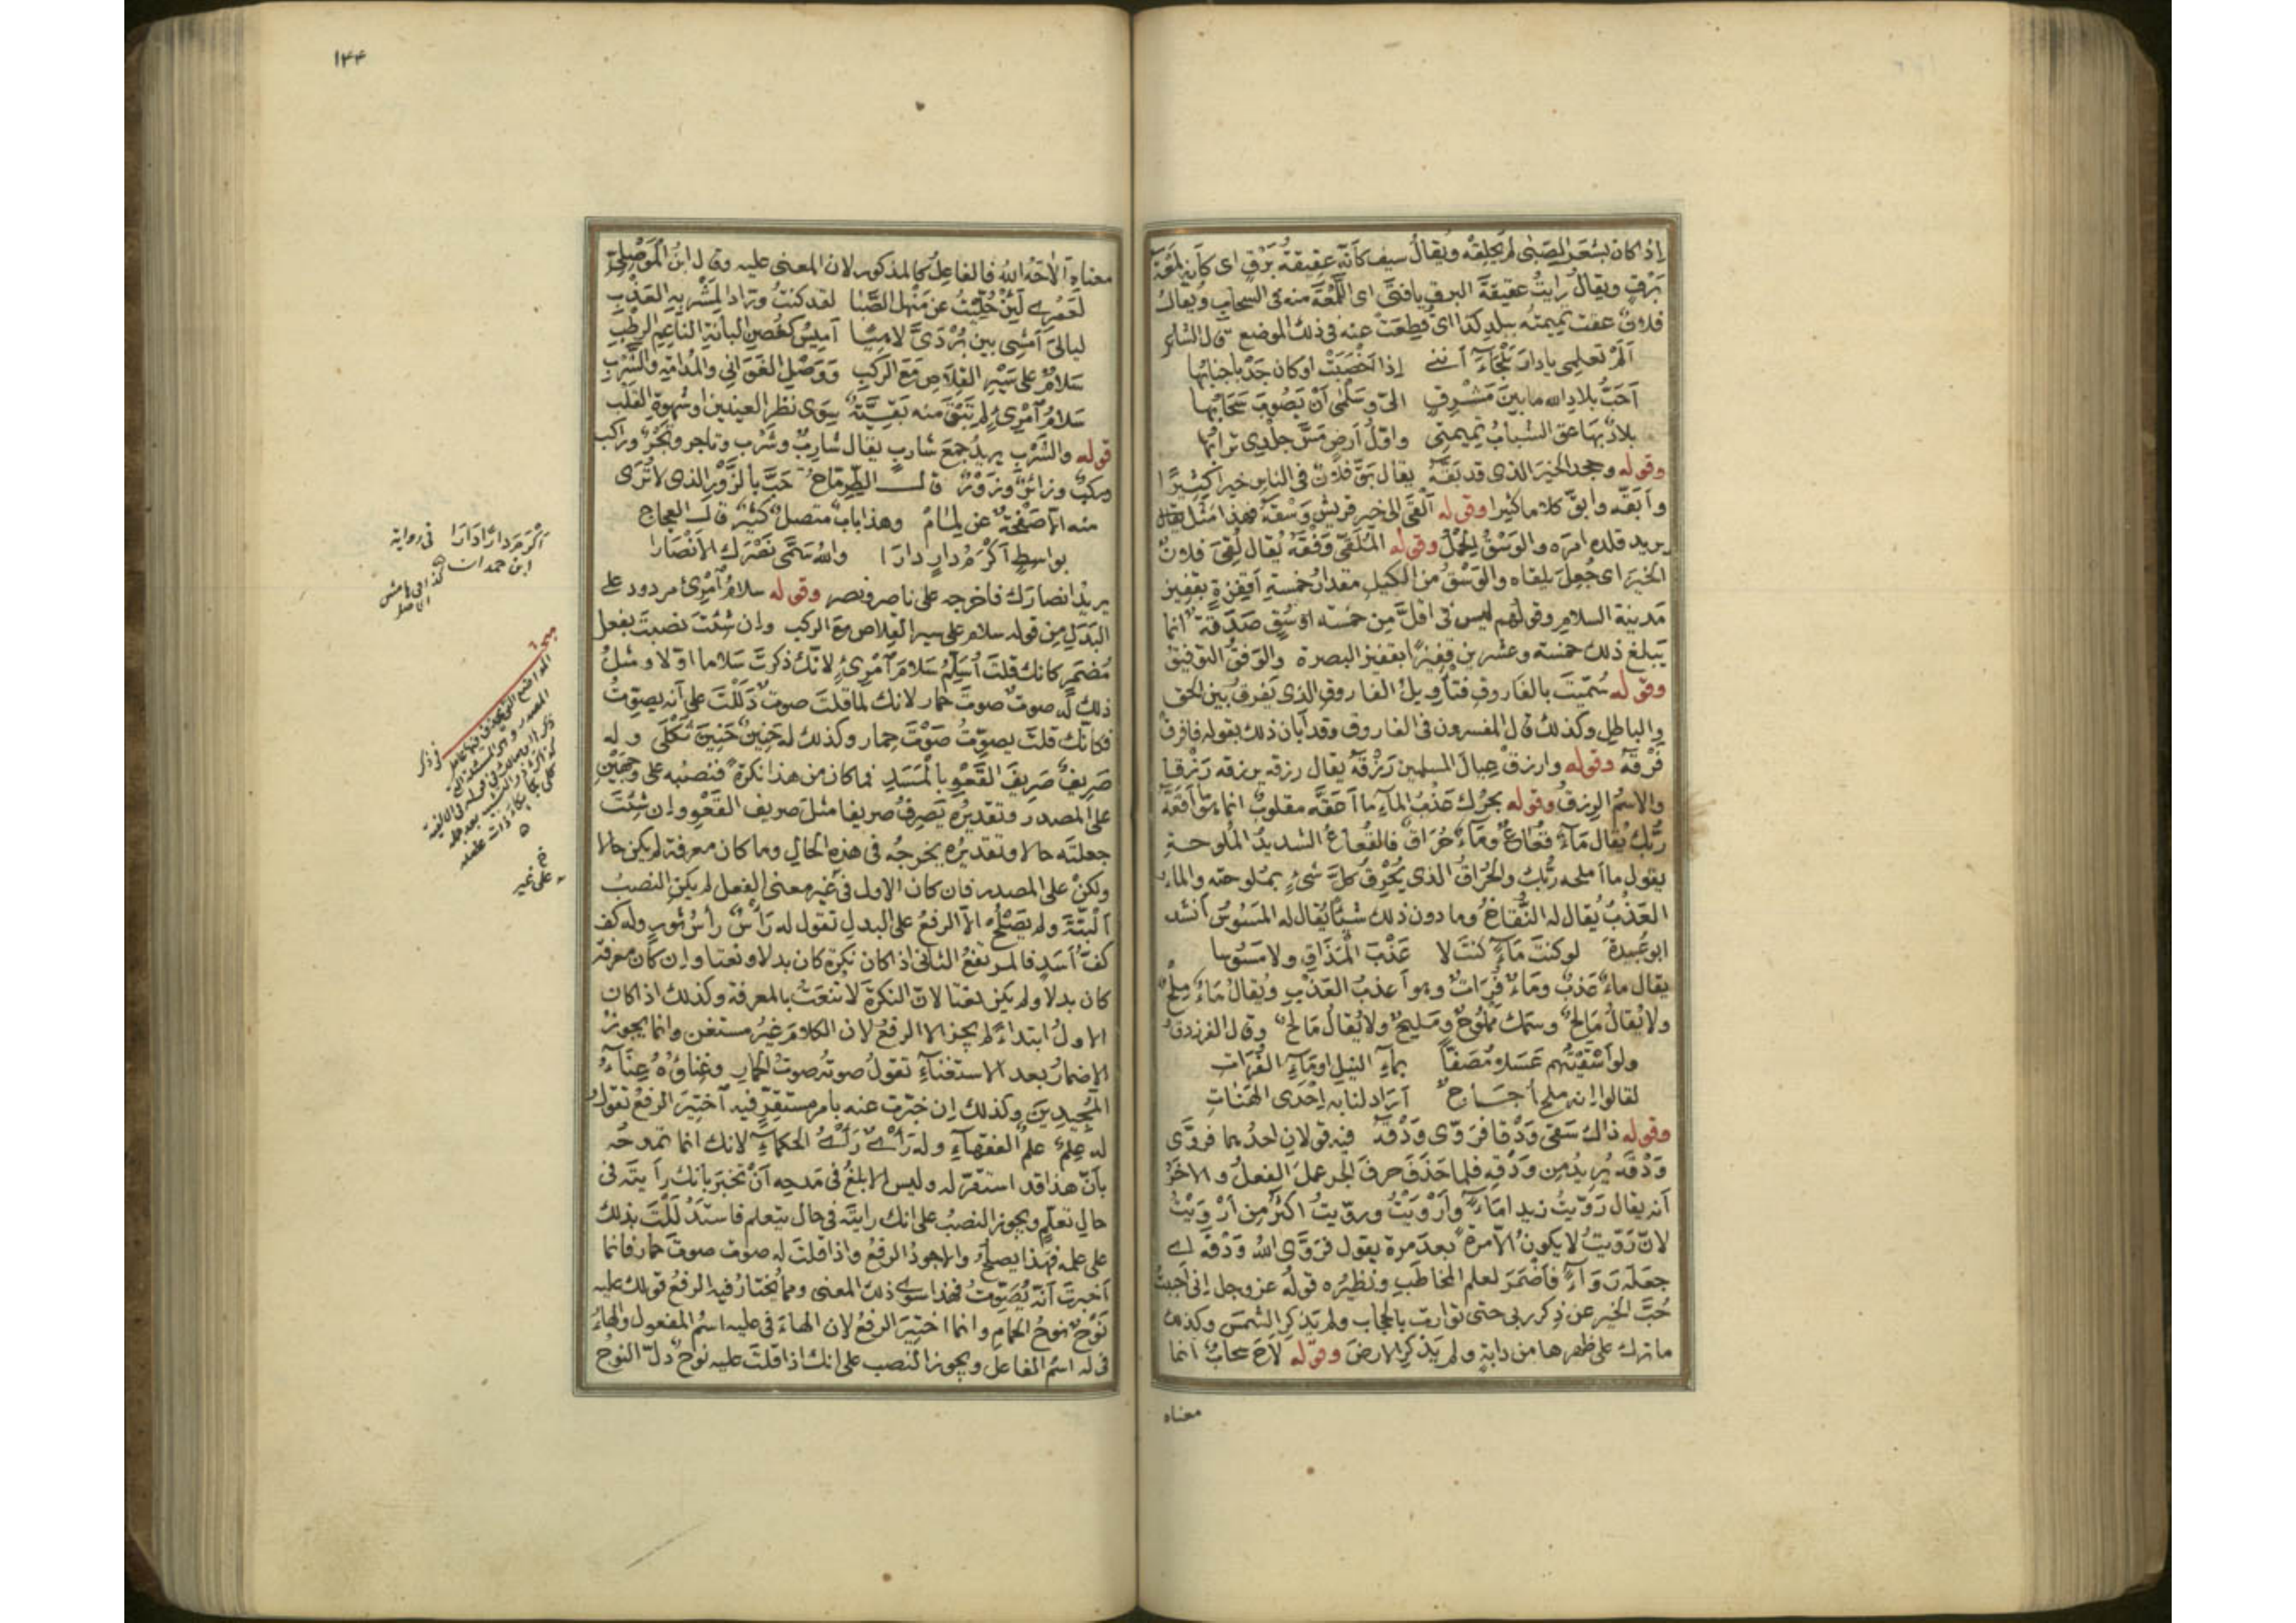 إذا كان لشعر الصبى لم يحلقه ويقال سيف كأنه عقيقة برق اى كأنه لمعة
برق ويقال رايت عقيقة البرق يافتى اى اللمعة منه فى السحاب ويقال
فلان عقت تميمته ببلد كذا اى قطعت عنه فى ذلك الموضع قال الشاعر
ألم تعلمى يا دار بلجاء أننى إذا أخصبت او كان جدبا جنابها
أحب بلاد الله ما بين مشرف الى وسلمى أن يصوب سحابها
بلاد بها عق الشباب تميمتى واول أرض مس جلدى ترابها
وقوله وجحد الخير الذى قد بقه يقال بق فلان فى الناس خيرا كثيرا
وأبقه وابق كلاما كثيرا وقوله ألقى الى خير قريش وسقه فهذا مثل يقال
يريد قلده امره والوسق الحمل وقوله الملقى وفقه يقال لقى فلان
الخير اى جعل يلقاه والوسق من الكيل مقدار خمسة أقفزة بقفيز
مدينة السلام وقولهم ليس فى اقل من خمسة اوسق صدقة انما
يبلغ ذلك خمسة وعشرين قفيزا بقفيز البصرة والوفق التوفيق
وقوله سميت بالفاروق فتأويل الفاروق الذى يفرق بين الحق
والباطل وكذلك قال المفسرون فى الفاروق وقد أبان ذلك بقوله فافرق
فرقه وقوله وارزق عيال المسلمين رزقه يقال رزقه يرزقه رزقا
والاسم الرزق وقوله بحرك عذب الماء ما أعقه مقلوب انما هو ما أقعه
ربك يقال ماء قعاع وماء حراق فالقعاع الشديد الملوحة
يقول ما أملحه ربك والحراق الذى يحرق كل شىء بملوحته والماء
العذب يقال له النقاخ وما دون ذلك شيئا يقال له المسوس أنشد
ابو عبيدة لو كنت ماء كنت لا عذب المذاق ولا مسوسا
يقال ماء عذب وماء فرات وهو أعذب العذب ويقال ماء ملح
ولا يقال مالح وسمك مملوح ومليح ولا يقال مالح وقال الفرزدق
ولو أسقيتهم عسلا مصفا بماء النيل او ماء الفرات
لقالوا إنه ملح أجاج أراد لنا به إحدى الهنات
وقوله ذاك سقى ودقا فروى ودقه فيه قولان احدهما فروى
ودقه يريد من ودقه فلما حذف حرف الجر عمل الفعل والاخر
أنه يقال رويت زيدا ماء وأرويت ورويت اكثر من أرويت
لان رويت لا يكون الا مرة بعد مرة يقول فروى الله ودقه اى
جعله رواء فأضمر لعلم المخاطب ونظيره قوله عز وجل إنى أحببت
حب الخير عن ذكر ربى حتى توارت بالحجاب ولم يذكر الشمس وكذلك
ما ترك على ظهرها من دابة ولم يذكر الارض وقوله لاح سحاب انما
معناه
١٢٤
معناه ألاحه الله فالفاعل كالمذكور لان المعنى عليه وقال ابن الموصلى
لعمرى لئن حليت عن منهل الصبا لقد كنت ورادا لمشربه العذب
ليالى أمشى بين بردى لاهيا أميس كغصن البانة الناعم الرطب
سلام على سير القلاص مع الركب ووصل الغوانى والمدامة والشرب
سلام امرئ لم تبق منه بقية سوى نظر العينين او شهوة القلب
قوله والشرب يريد جمع شارب يقال شارب وشرب وتاجر وتجر وراكب
وركب وزائر وزور قال الطرماح حب بالزور الذى لا ترى
منه الا صفحة عن لمام وهذا باب متصل كثير قال العجاج
بواسط أكرم دار دارا والله سمى نصرك الأنصارا
يريد انصارك فاخرجه على ناصر ونصر وقوله سلام امرئ مردود على
البدل من قوله سلام على سير القلاص مع الركب وان شئت نصبت بفعل
مضمر كانك قلت أسلم سلام امرئ لانك ذكرت سلاما اولا ومثل
ذلك له صوت صوت حمار لانك لما قلت صوت دللت على أنه يصوت
فكأنك قلت يصوت صوت حمار وكذلك له حنين حنين ثكلى وله
صريف صريف القعو بالمسد فما كان من هذا نكرة فنصبه على وجهين
على المصدر وتقديره يصرف صريفا مثل صريف القعو وإن شئت
جعلته حالا وتقديره يخرجه فى هذه الحال وما كان معرفة لم يكن حالا
ولكن على المصدر فان كان الاول فى غير معنى الفعل لم يكن النصب
ألبتة ولم يصلح الا الرفع على البدل تقول له رأس رأس ثور وله كف
كف أسد فالمرتفع الثانى اذا كان نكرة كان بدلا ونعتا وإن كان معرفة
كان بدلا ولم يكن نعتا لان النكرة لا تنعت بالمعرفة وكذلك اذا كان
الاول ابتداء لم يجز الا الرفع لان الكلام غير مستغن وانما يجوز
الاضمار بعد الاستغناء تقول صوته صوت الحمار وغناؤه غناء
المجيدين وكذلك إن خبرت عنه بامر مستقر فيه اختير الرفع تقول
له علم علم الفقهاء وله رأى رأى الحكماء لانك انما تمدحه
بأن هذا قد استقر له وليس الابلغ فى مدحه أن تخبر بأنك رأيته فى
حال تعلم ويجوز النصب على انك رايته فى حال يتعلم فاستدللت بذلك
على علمه فهذا يصلح والاجود الرفع واذا قلت له صوت صوت حمار فانما
أخبرت أنه يصوت فهذا سوى ذلك المعنى ومما يختار فيه الرفع قولك عليه
نوح نوح الحمام وانما اختير الرفع لان الهاء فى عليه اسم المفعول والهاء
فى له اسم الفاعل ويجوز النصب على انك اذا قلت عليه نوح دل النوح
أكرم دارا دارا فى رواية
ابن حمدان
كذا فى هامش
الاصل